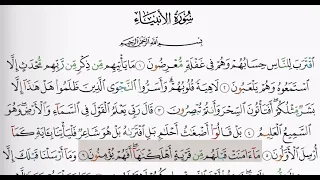 سُورَةُ الأَنبِيَاءِ
بِسْمِ اللَّهِ الرَّحْمَٰنِ الرَّحِيمِ
اقْتَرَبَ لِلنَّاسِ حِسَابُهُمْ وَهُمْ فِي غَفْلَةٍ مُّعْرِضُونَ ١ مَا يَأْتِيهِم مِّن ذِكْرٍ مِّن رَّبِّهِم مُّحْدَثٍ إِلَّا
اسْتَمَعُوهُ وَهُمْ يَلْعَبُونَ ٢ لَاهِيَةً قُلُوبُهُمْ وَأَسَرُّوا النَّجْوَى الَّذِينَ ظَلَمُوا هَلْ هَٰذَا إِلَّا
بَشَرٌ مِّثْلُكُمْ أَفَتَأْتُونَ السِّحْرَ وَأَنتُمْ تُبْصِرُونَ ٣ قَالَ رَبِّي يَعْلَمُ الْقَوْلَ فِي السَّمَاءِ وَالْأَرْضِ وَهُوَ
السَّمِيعُ الْعَلِيمُ ٤ بَلْ قَالُوا أَضْغَاثُ أَحْلَامٍ بَلِ افْتَرَاهُ بَلْ هُوَ شَاعِرٌ فَلْيَأْتِنَا بِآيَةٍ كَمَا
أُرْسِلَ الْأَوَّلُونَ ٥ مَا آمَنَتْ قَبْلَهُم مِّن قَرْيَةٍ أَهْلَكْنَاهَا أَفَهُمْ يُؤْمِنُونَ ٦ وَمَا أَرْسَلْنَا قَبْلَكَ إِلَّا